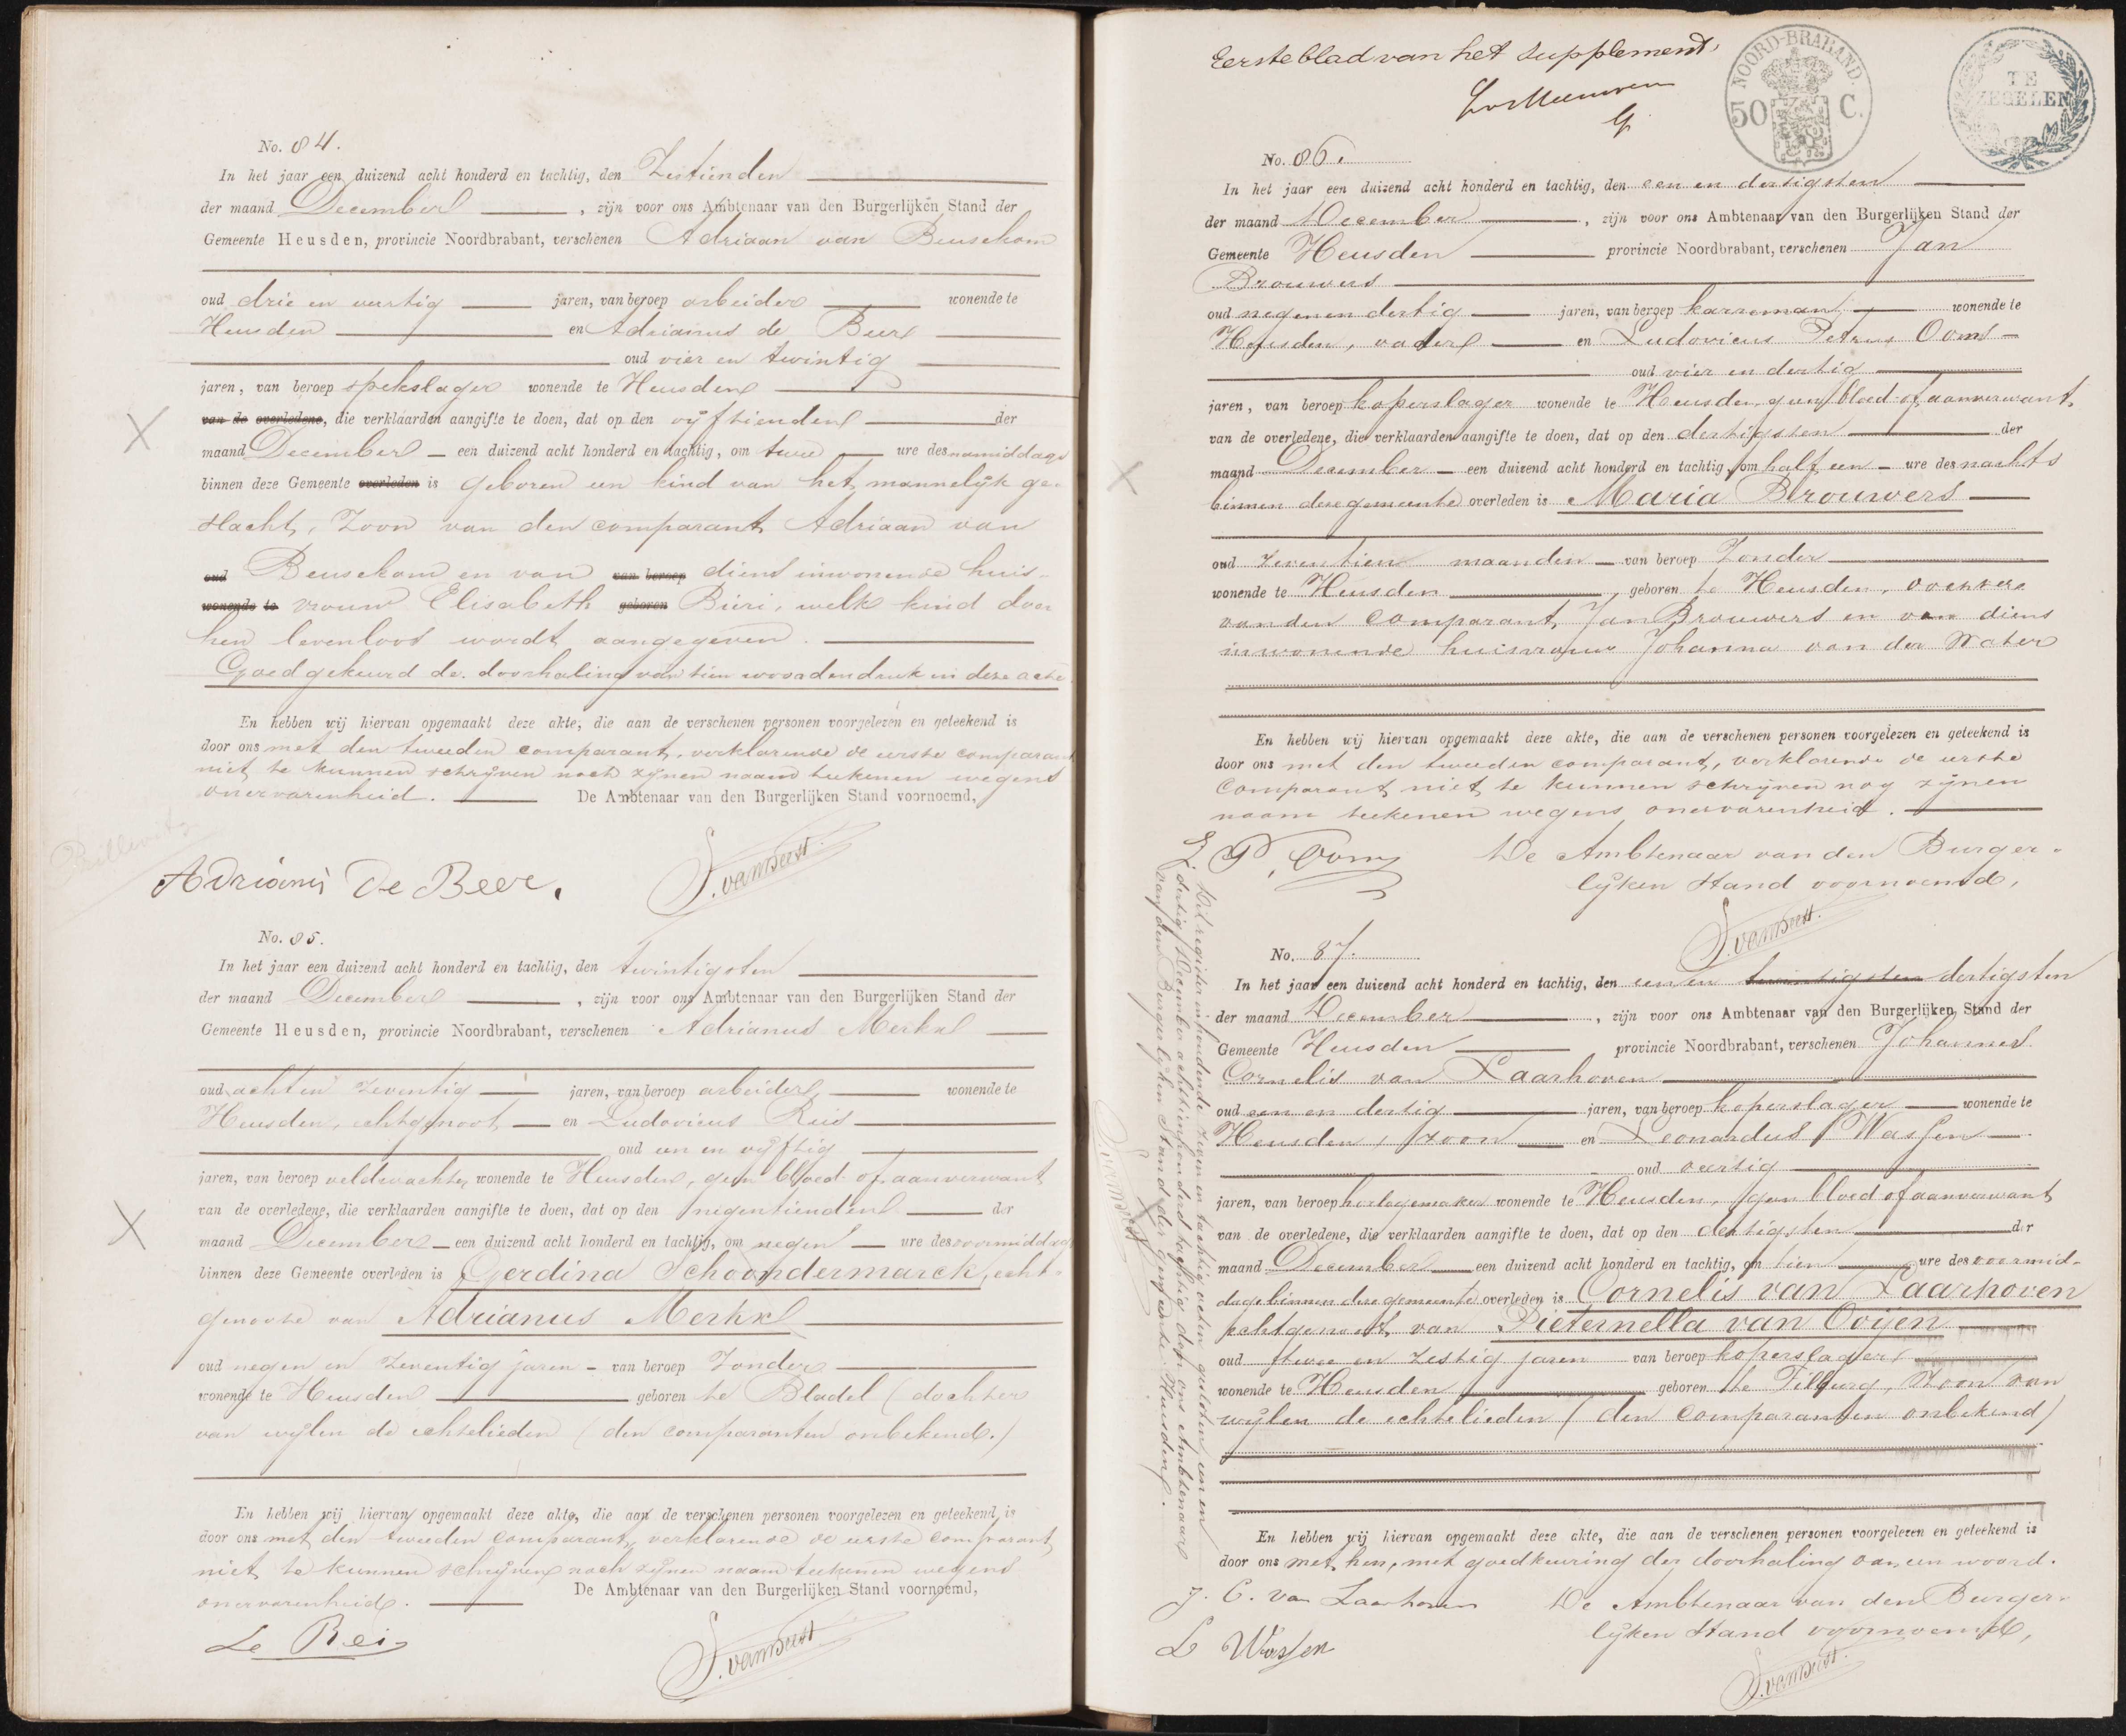 No. 84.
In het jaar een duizend acht honderd en tachtig, den Zestienden
der maand December, zijn voor ons Ambtenaar van den Burgerlijken Stand der
Gemeente Heusden, provincie Noordbrabant, verschenen Adriaan van Beusekom
oud drie en veertig jaren, van beroep arbeider wonende te
Heusden en Adrianus de Beer
oud vier en twintig
jaren, van beroep spekslager wonende te Heusden
van de overledene, die verklaarden aangifte te doen, dat op den vijftienden der
maand December een duizend acht honderd en tachtig, om twee ure des namiddags
binnen deze Gemeente overleden is geboren een kind van het mannelijk ge-
slacht, Zoon van den comparant Adriaan van
oud Beusekom en van van beroep diens inwonende huis-
wonende te vrouw Elisabeth geboren Bieri, welk kind door
hen levenloos wordt aangegeven.
Goedgekeurd de doorhaling van tien woorden druk in deze acte.
En hebben wij hiervan opgemaakt deze akte, die aan de verschenen personen voorgelezen en geteekend is
door ons met den tweeden comparant, verklarende de eerste comparant
niet te kunnen schrijven noch zijnen naam teekenen wegens
onervarenheid. De Ambtenaar van den Burgerlijken Stand voornoemd,
Adrianis De Beer.
S. van Beest
No. 85.
In het jaar een duizend acht honderd en tachtig, den twintigsten
der maand December, zijn voor ons Ambtenaar van den Burgerlijken Stand der
Gemeente Heusden, provincie Noordbrabant, verschenen Adrianus Merkx
oud acht en zeventig jaren, van beroep arbeider, wonende te
Heusden, echtgenoot, en Ludovicus Reis
oud een en vijftig
jaren, van beroep veldwachter wonende te Heusden, geen bloed- of aanverwant
van de overledene, die verklaarden aangifte te doen, dat op den negentienden der
maand December een duizend acht honderd en tachtig, om negen ure des voormiddags
binnen deze Gemeente overleden is Gerdina Schoondermarck, echt-
genoote van Adrianus Merkx
oud negen en zeventig jaren van beroep Zonder
wonende te Heusden geboren te Bladel (dochter
van wijlen de echtelieden (den comparanten onbekend.)
En hebben wij hiervan opgemaakt deze akte, die aan de verschenen personen voorgelezen en geteekend is
door ons met den tweeden comparant, verklarende de eerste comparant
niet te kunnen schrijven noch zijnen naam teekenen wegens
onervarenheid. De Ambtenaar van den Burgerlijken Stand voornoemd,
Le Reis
S. van Beest
Eerste blad van het supplement.
NOORD-BRABAND.
50 C.
TE
ZEGELEN
No. 86.
In het jaar een duizend acht honderd en tachtig, den een en dertigsten
der maand December, zijn voor ons Ambtenaar van den Burgerlijken Stand der
Gemeente Heusden provincie Noordbrabant, verschenen Jan
Brouwers
oud negen en dertig jaren, van beroep karreman, wonende te
Heusden, vader en Ludovicus Petrus Ooms
oud vier en dertig
jaren, van beroep koperslager wonende te Heusden, geen bloed of aanverwant
van de overledene, die verklaarden aangifte te doen, dat op den dertigsten der
maand December een duizend acht honderd en tachtig, om half een ure des nachts
binnen deze gemeente overleden is Maria Brouwers
oud zeventien maanden van beroep Zonder
wonende te Heusden, geboren te Heusden, dochter
van den comparant, Jan Brouwers en van diens
inwonende huisvrouw Johanna van der Water
En hebben wij hiervan opgemaakt deze akte, die aan de verschenen personen voorgelezen en geteekend is
door ons met den tweeden comparant, verklarende de eerste
comparant niet te kunnen schrijven nog zijnen
naam teekenen wegens onervarenheid.
L. P. Ooms De Ambtenaar van den Burger-
lijken Stand voornoemd,
S. van Beest
Dit register inhoudende zeven en tachtig acten gesloten een en
dertig December achttienhonderd tachtig door ons Ambtenaar
van den Burgerlijken Stand der gemeente Heusden.
S. van Beest
No. 87.
In het jaar een duizend acht honderd en tachtig, den een en twintigsten dertigsten
der maand December, zijn voor ons Ambtenaar van den Burgerlijken Stand der
Gemeente Heusden provincie Noordbrabant, verschenen Johannes
Cornelis van Laarhoven
oud een en dertig jaren, van beroep koperslager wonende te
Heusden, zoon en Leonardus Wassen
oud veertig
jaren, van beroep horlogemaker wonende te Heusden, geen bloed of aanverwant
van de overledene, die verklaarden aangifte te doen, dat op den dertigsten der
maand December een duizend acht honderd en tachtig, om tien ure des voormid-
dags binnen deze gemeente overleden is Cornelis van Laarhoven
echtgenoot van Pieternella van Ooijen
oud twee en zestig jaren van beroep koperslager,
wonende te Heusden geboren te Tilburg, Zoon van
wijlen de echtelieden (den comparanten onbekend)
En hebben wij hiervan opgemaakt deze akte, die aan de verschenen personen voorgelezen en geteekend is
door ons met hen, met goedkeuring der doorhaling van een woord.
J. C. van Laarhoven De Ambtenaar van den Burger-
L Wassen lijken Stand voornoemd,
S. van Beest